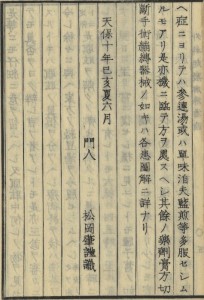 ヘ症ニヨリテハ參連湯或ハ單味滛夫藍煎等多服セシム
ルモアリ是亦機ニ臨テ方ヲ處スヘシ其餘ノ鵝劑膏方切
斷手術繃縛器械ノ如キハ各患圖解ニ詳ナリ
天保十年己亥夏六月
門人 松岡肇謹識